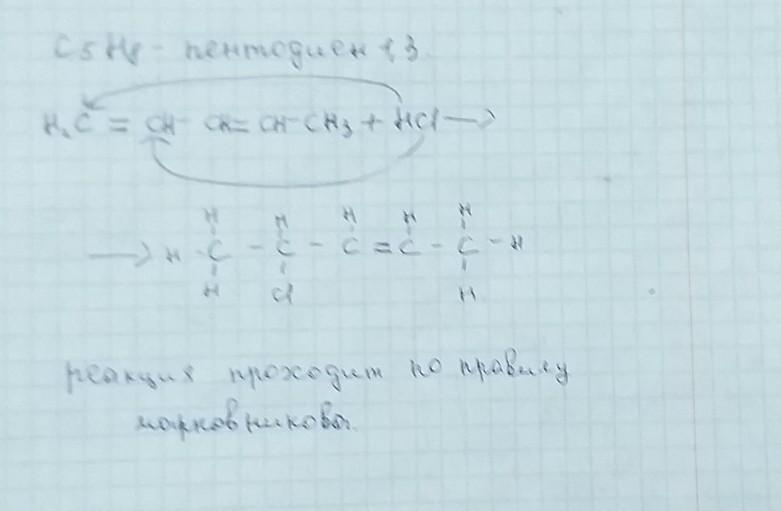 C5H8 - пентодиен 1,3.
H2C = CH - CH = CH - CH3 + HCl →
H H H H H
→ H - C - C - C = C - C - H
H Cl H
реакция проходит по правилу
марковникова.